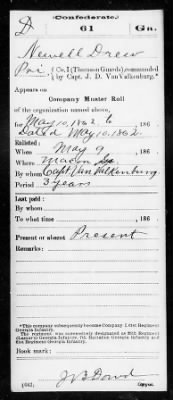 (Confederate.)
D 61 Ga.
Newell Drew
Pvt., { Co. (Thomson Guards), commanded by Capt. J. D. Van Valkenburg.*
Appears on
Company Muster Roll
of the organization named above,
for May 10, 1862 to , 186 .
Dated May 10, 1862.
Enlisted:
When May 9 , 186 .
Where Macon Ga
By whom Capt. Van Valkenburg
Period 3 years
Last paid:
By whom
To what time , 186 .
Present or absent Present
Remarks:
*This company subsequently became Company 61st Regiment Georgia Infantry.
Book mark:
J B Dowd
(642) Copyist.